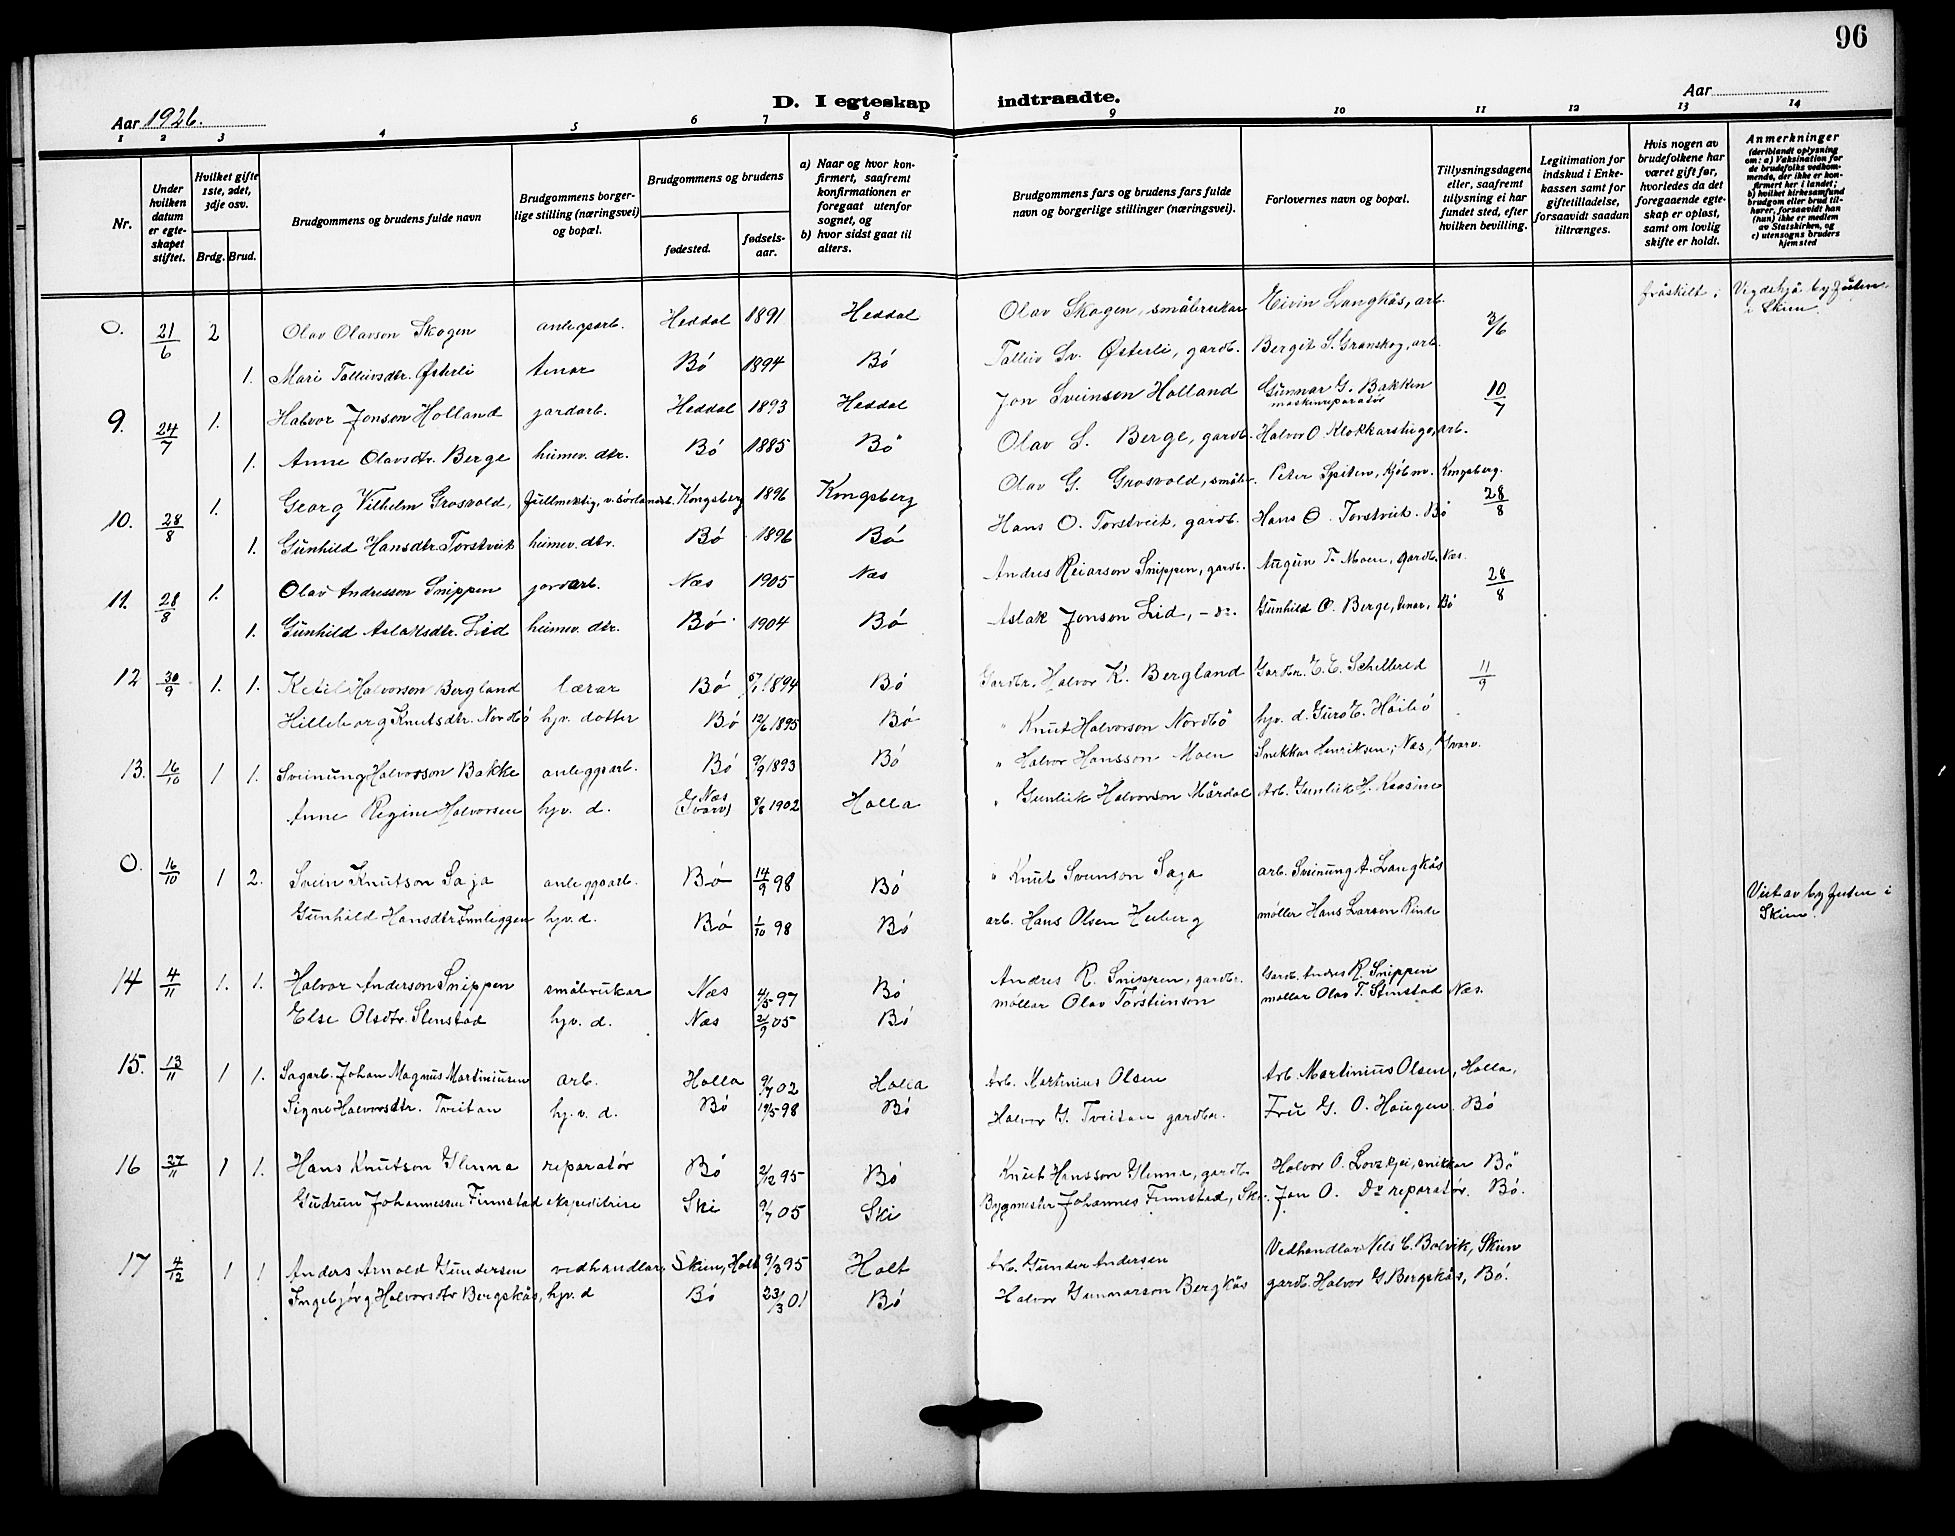 96
D. I egteskap indtraadte.
Aar 1926. Aar
1 2 3 4 5 6 7 8 9 10 11 12 13 14
Nr.
Under hvilken datum er egteskapet stiftet.
Hvilket gifte 1ste, 2det, 3dje osv.
Brdg. Brud.
Brudgommens og brudens fulde navn
Brudgommens borgerlige stilling (næringsvei) og bopæl.
Brudgommens og brudens
fødested. fødselsaar.
a) Naar og hvor konfirmert, saafremt konfirmationen er foregaat utenfor sognet, og
b) hvor sidst gaat til alters.
Brudgommens fars og brudens fars fulde navn og borgerlige stillinger (næringsvei).
Forlovernes navn og bopæl.
Tillysningsdagene eller, saafremt tilysning ei har fundet sted, efter hvilken bevilling.
Legitimation for indskud i Enkekassen samt for giftetilladelse, forsaavidt saadan tiltrænges.
Hvis nogen av brudefolkene har været gift før, hvorledes da det foregaaende egteskap er opløst, samt om lovlig skifte er holdt.
Anmerkninger (deriblandt oplysning om: a) Vaksination for de brudefolks vedkommende, der ikke er konfirmert her i landet; b) hvilket kirkesamfund brudgom eller brud tilhører, forsaavidt han (hun) ikke er medlem av Statskirken, og c) utensogns bruders hjemsted
0. 21/6 2 Olav Olavson Skogen anlegsarb. Heddal 1891 Heddal Olav Skogen, småbrukar Eivin Langkås, arb. 3/6 fråskilt Vigde hjå byfuten i Skien.
1. Mari Talleivsdtr. Østerli tenar Bó 1894 Bó Talleiv Sv. Østerli, gardb. Bergit S. Granskog, arb.
9. 24/7 1. Halvor Jonson Holland jordarb. Heddal 1893 Heddal Jon Sveinson Holland Gunnar G. Bakken maskinreparatør 10/7
1. Anne Olavsdtr. Berge heimev. dtr. Bó 1885 Bó Olav S. Berge, gardb. Halvor O. Klokkarstugo, arb.
10. 28/8 1. Georg Vilhelm Grosvold, fullmektig, v. Sørlandsb. Kongsberg 1896 Kongsberg Olav G. Grosvold, småbr. Peter Speten, kjöbm. Kongsberg. 28/8
1. Gunhild Hansdtr. Torstveit heimev. dtr. Bó 1896 Bó Hans O. Torstveit, gardb. Hans O. Torstveit. Bó
11. 28/8 1. Olav Andresson Snippen jordarb. Næs 1905 Næs Andres Reiarson Snippen, gardb. Augun T. Moen, gardb. Næs. 28/8
1. Gunhild Aslaksdtr. Lid heimev. dtr. Bó 1904 Bó Aslak Jonson Lid, - do - Gunhild O. Berge, tenar, Bó
12 30/9 1. 1. Ketil Halvorson Bergland lærar Bó 1894 Bó Gardbr. Halvor K. Bergland Gardbr. E. E. Schillered 11/9
Hilleborg Knutsdtr. Nordbö hjv. dotter Bó 12/6 1895 Bó " Knut Halvorson Nordbö hjv. d. Guro E. Høibö
13. 16/10 1 1. Sveinung Halvorsson Bakke anleggsarb. Bó 9/9 1893 Bó " Halvor Hansson Moen Snekkar Henriksen, Næs, Gvarv.
Anne Regine Halvorsen hjv. d. Næs (Gvarv) 8/8 1902 Holla " Gunleik Halvorson Mårdal Arb. Gunleik H. Kaasine
0. 16/10 1 2. Svein Knutson Saga anleggsarb. Bó 14/9 98 Bó " Knut Svenson Saga arb. Sveinung A. Langkås Viet av byfuten i Skien.
Gunhild Hansdtr. Innleggen hjv. d. Bó 1/10 98 Bó arb. Hans Olsen Heiberg møller Hans Larson Rinde
14 4/11 1. 1. Halvor Anderson Snippen småbrukar Næs 4/5 97 Bó Andres R. Snippen, gardbr. Gardb. Andres R. Snippen
Else Olsdtr. Stenstad hjv. d. Næs 2/9 05 Bó møllar Olav Torsteinson møllar Olav T. Stenstad Næs.
15. 13/11 1 1. Sagarb. Johan Magnus Martiniusen arb. Holla 9/7 02 Holla Arb. Martinius Olsen Arb. Martinius Olsen, Holla,
Signe Halvorsdtr. Tveitan hj. v. d. Bó 19/5 98 Bó Halvor G. Tveitan gardbr. Fru G. O. Haugen. Bó
16 27/11 1 1. Hans Knutson Glenna reparatør Bó 2/12 95 Bó Knut Hansson Glenna, gardb. Halvor O. snikkar Bó
Gudrun Johannessen Finnstad ekspeditrise Ski 9/7 05 Ski Bygmester Johannes Finnstad, Ski. Jon O. Do reparatør. Bó.
17 4/12 1 1 Anders Arnold Gundersen vedhandlar, Skien, Holt 9/3 95 Holt Arb. Gunder Andersen Vedhandlar Nils C. Bolvik, Skien
Ingebjørg Halvorsdtr Bergskås, hjv. d Bó 23/3 01 Bó Halvor Gunnarson Bergkås gardb. Halvor G. Bergskås, Bó.